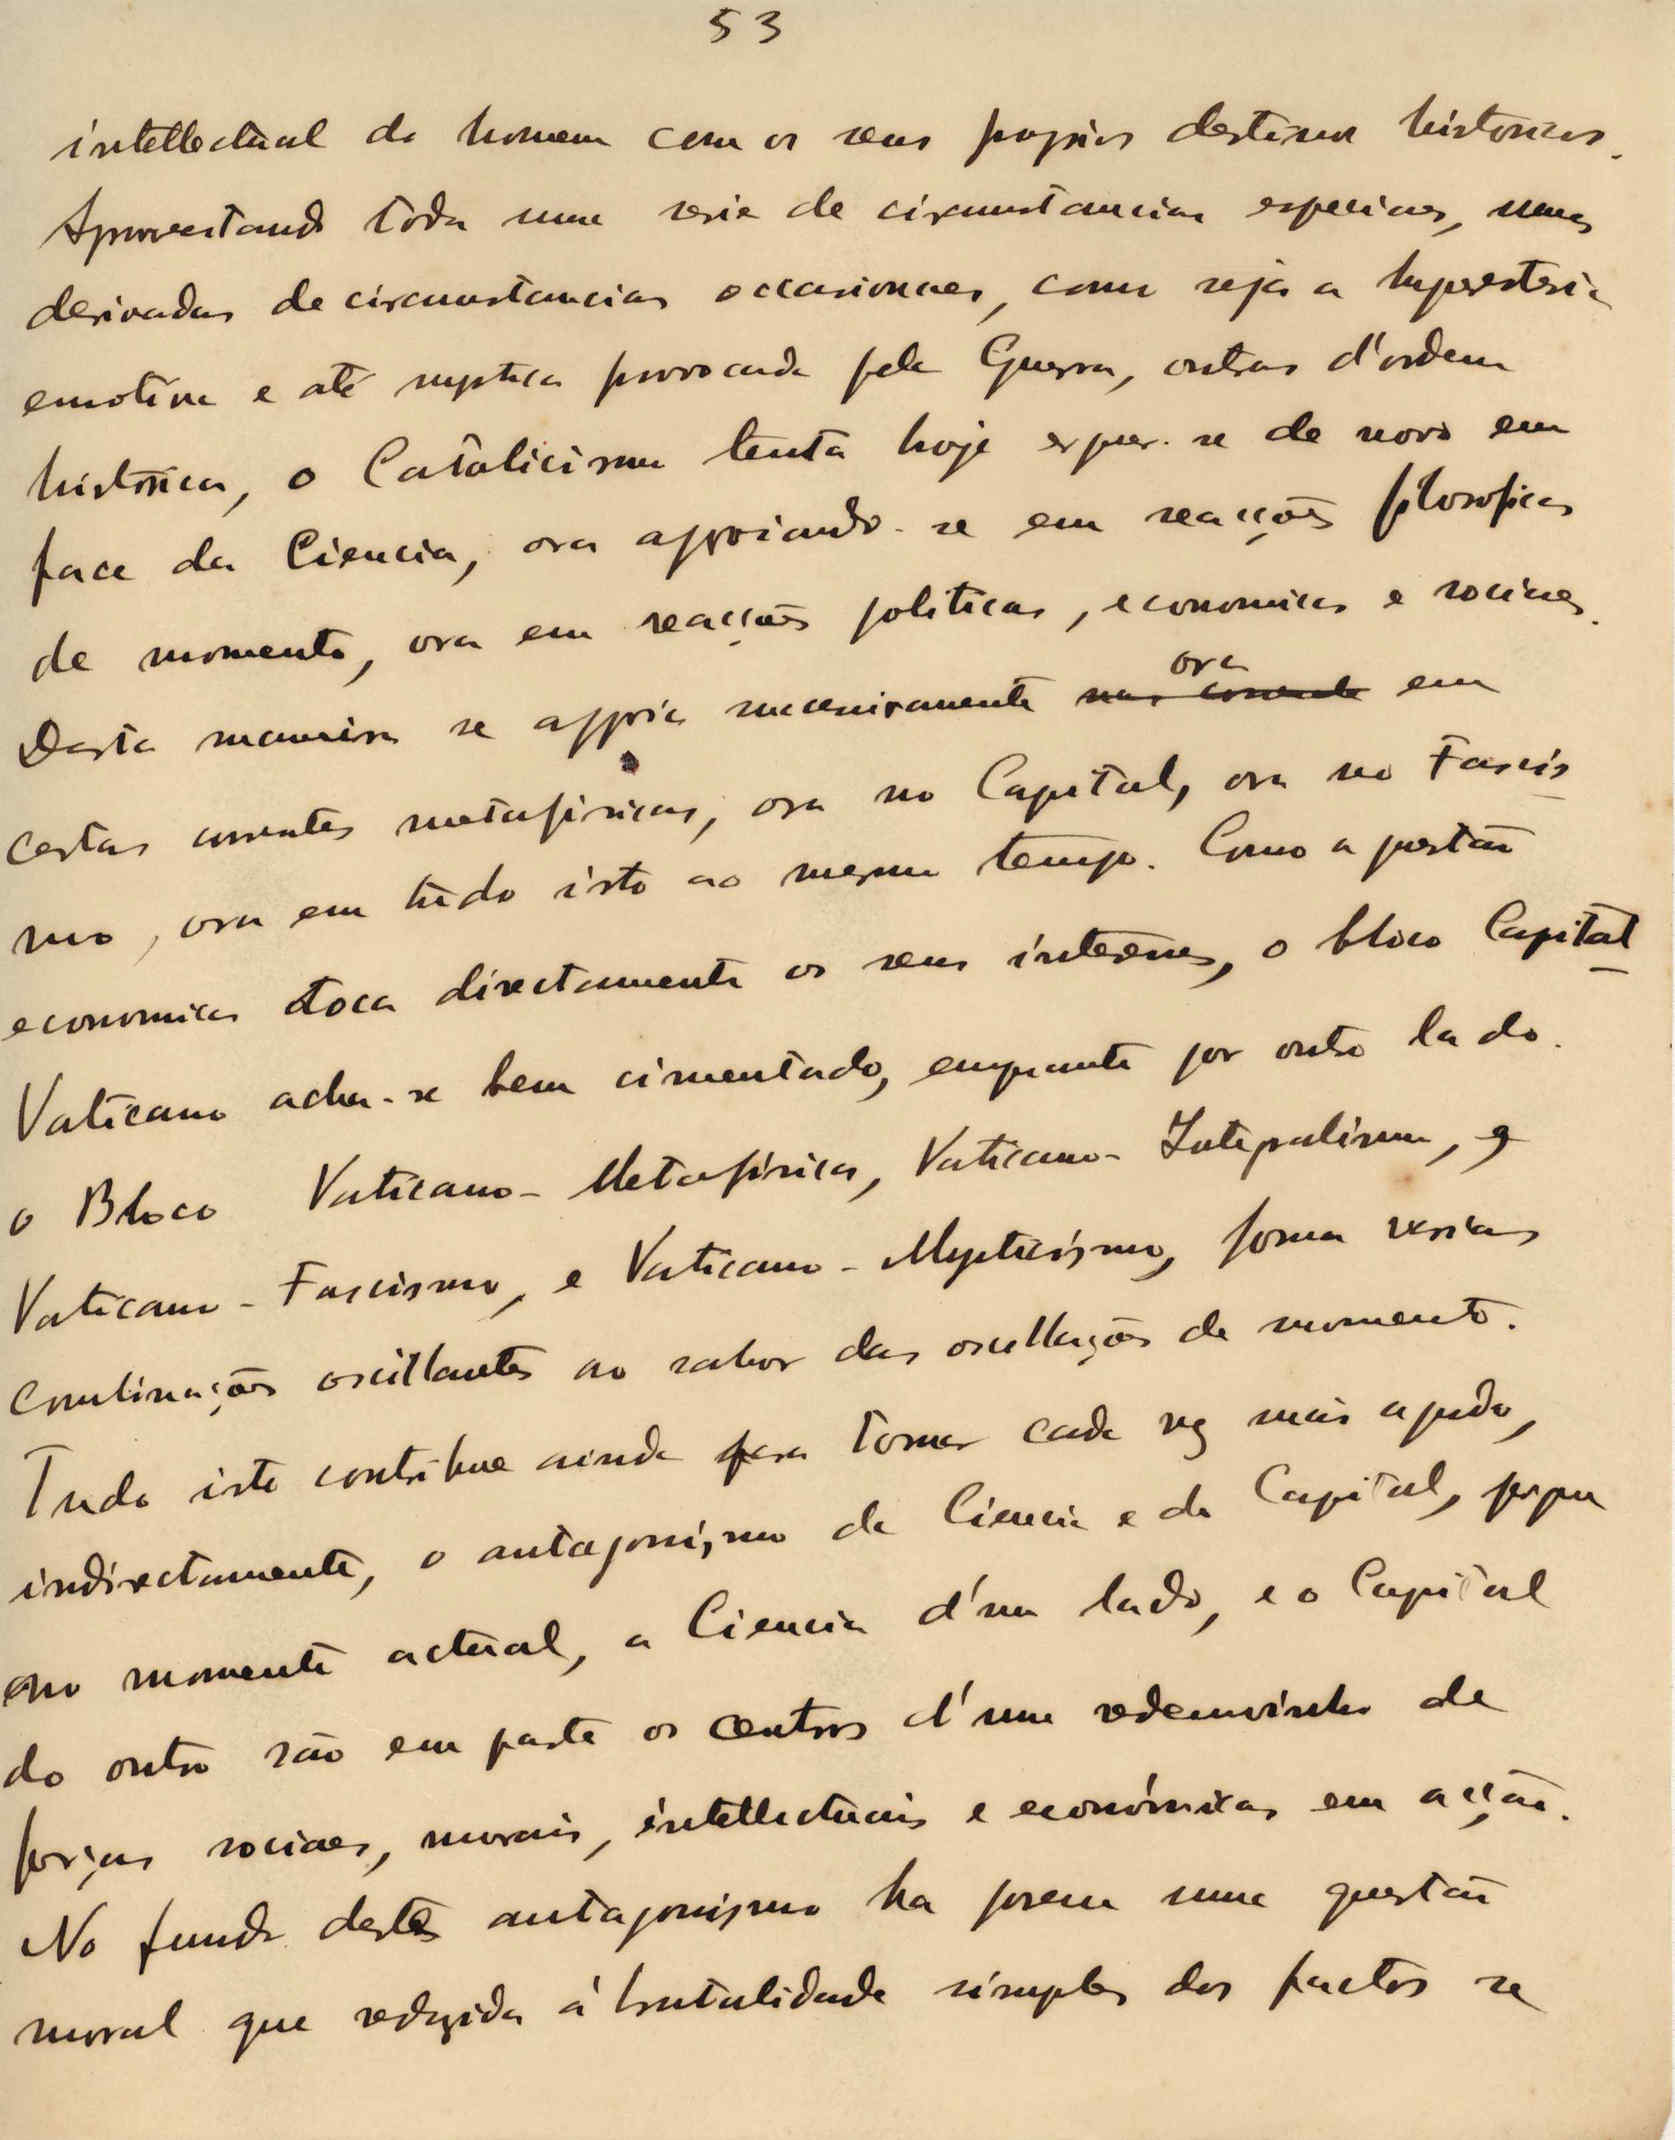 53
intellectual do homem com os seus proprios destinos historicos.
Aproveitando toda uma serie de circumstancias especiaes, umas
derivadas de circumstancias occasionaes, como seja a hyperesteria
emotiva e até mystica provocada pela Guerra, outras d'ordem
historica, o Catolicismo tenta hoje erguer-se de novo em
face da Ciencia, ora appoiando-se em reacções filosoficas
de momento, ora em reacções politicas, economicas e sociaes.
Desta maneira se appoia sucessivamente ora em
certas correntes metafisicas, ora no Capital, ora no Fascis
mo, ora em tudo isto ao mesmo tempo. Como a questão
economica toca directamente os seus interesses, o bloco Capital
Vaticano acha-se bem cimentado, emquanto por outro lado.
o Bloco Vaticano-Metafisica, Vaticano-Integralismo,
Vaticano-Fascismo, e Vaticano-Mysticismo, forma varias
combinações oscillantes ao sabor das oscillações de momento.
Tudo isto contribue ainda para tornar cada vez mais agudo,
indirectamente, o antagonismo da Ciencia e do Capital, porque
no momento actual, a Ciencia d'um lado, e o Capital
do outro são em parte os centros d'um redemoinho de
forças sociaes, moraes, intellectuais e económicas em acção.
No fundo deste antagonismo ha porem uma questão
moral que reduzida á brutalidade simples dos factos se